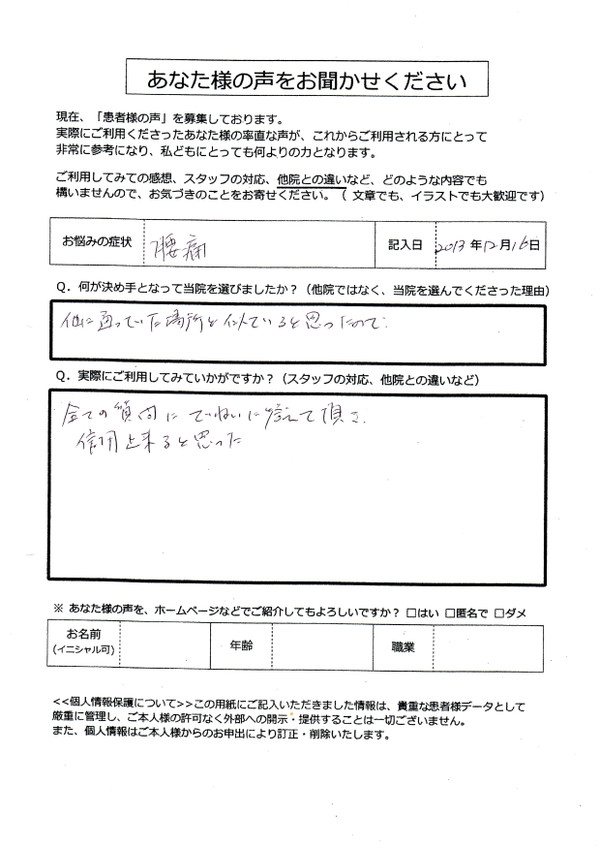 あなた様の声をお聞かせください
現在、「患者様の声」を募集しております。
実際にご利用くださったあなた様の率直な声が、これからご利用される方にとって
非常に参考になり、私どもにとっても何よりの力となります。
ご利用してみての感想、スタッフの対応、他院との違いなど、どのような内容でも
構いませんので、お気づきのことをお寄せください。（ 文章でも、イラストでも大歓迎です）
お悩みの症状 腰痛 記入日 2013 年 12 月 16 日
Q．何が決め手となって当院を選びましたか？（他院ではなく、当院を選んでくださった理由）
他に通っていた場所と似ていると思ったので.
Q．実際にご利用してみていかがですか？（スタッフの対応、他院との違いなど）
全ての質問にていねいに答えて頂き、
信用出来ると思った
※ あなた様の声を、ホームページなどでご紹介してもよろしいですか？ □はい □匿名で □ダメ
お名前 年齢 職業
（イニシャル可）
<<個人情報保護について>>この用紙にご記入いただきました情報は、貴重な患者様データとして
厳重に管理し、ご本人様の許可なく外部への開示・提供することは一切ございません。
また、個人情報はご本人様からのお申出により訂正・削除いたします。